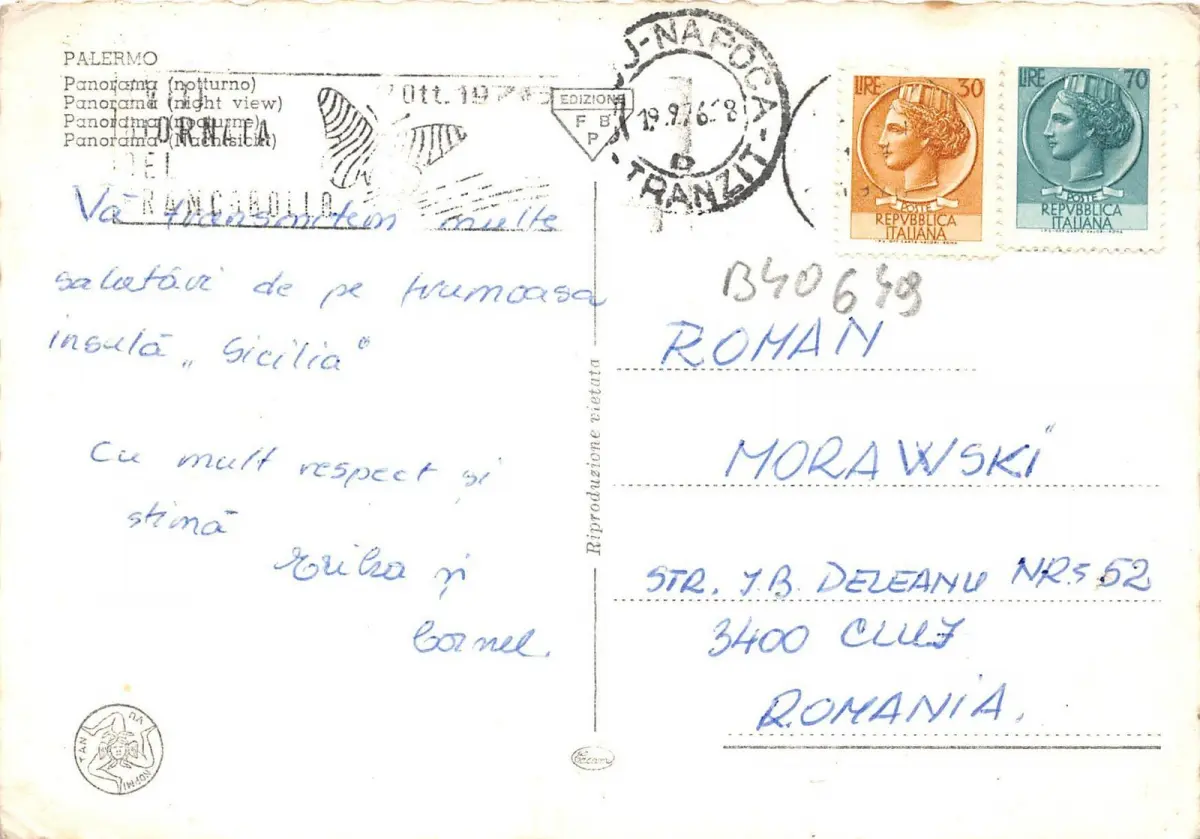 PALERMO
Panorama (notturno)
Panorama (night view)
Panorama (nocturne)
Panorama (Nachtsicht)
GIORNATA
DEL
FRANCOBOLLO
Ott. 197
EDIZIONE
F B
P
CLUJ-NAPOCA
19.9.76
TRANZIT
LIRE 30
POSTE
REPVBBLICA
ITALIANA
LIRE 70
POSTE
REPVBBLICA
ITALIANA
Vă transmitem multe
salutări de pe frumoasa
insulă „Sicilia"
Cu mult respect și
stimă
Erika și
Cornel.
Riproduzione vietata
B40649
ROMAN
MORAWSKI
STR. I.B. DELEANU NR. 52
3400 CLUJ
ROMANIA.